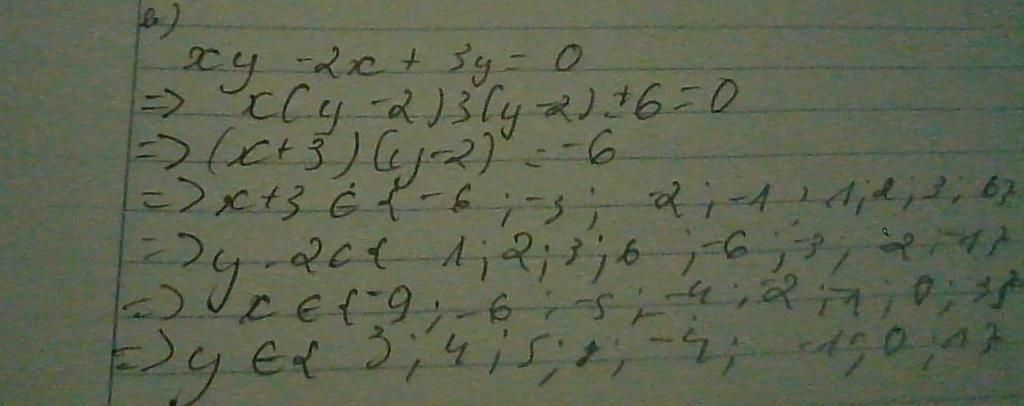 b)
xy - 2x + 3y = 0
=> x(y - 2) 3(y - 2) + 6 = 0
=> (x + 3)(y - 2) = -6
=> x + 3 ∈ { -6 ; -3 ; -2 ; -1 ; 1 ; 2 ; 3 ; 6 }
=> y - 2 ∈ { 1 ; 2 ; 3 ; 6 ; -6 ; -3 ; -2 ; -1 }
=> x ∈ { -9 ; -6 ; -5 ; -4 ; -2 ; -1 ; 0 ; 3 }
=> y ∈ { 3 ; 4 ; 5 ; 8 ; -4 ; -1 ; 0 ; 1 }